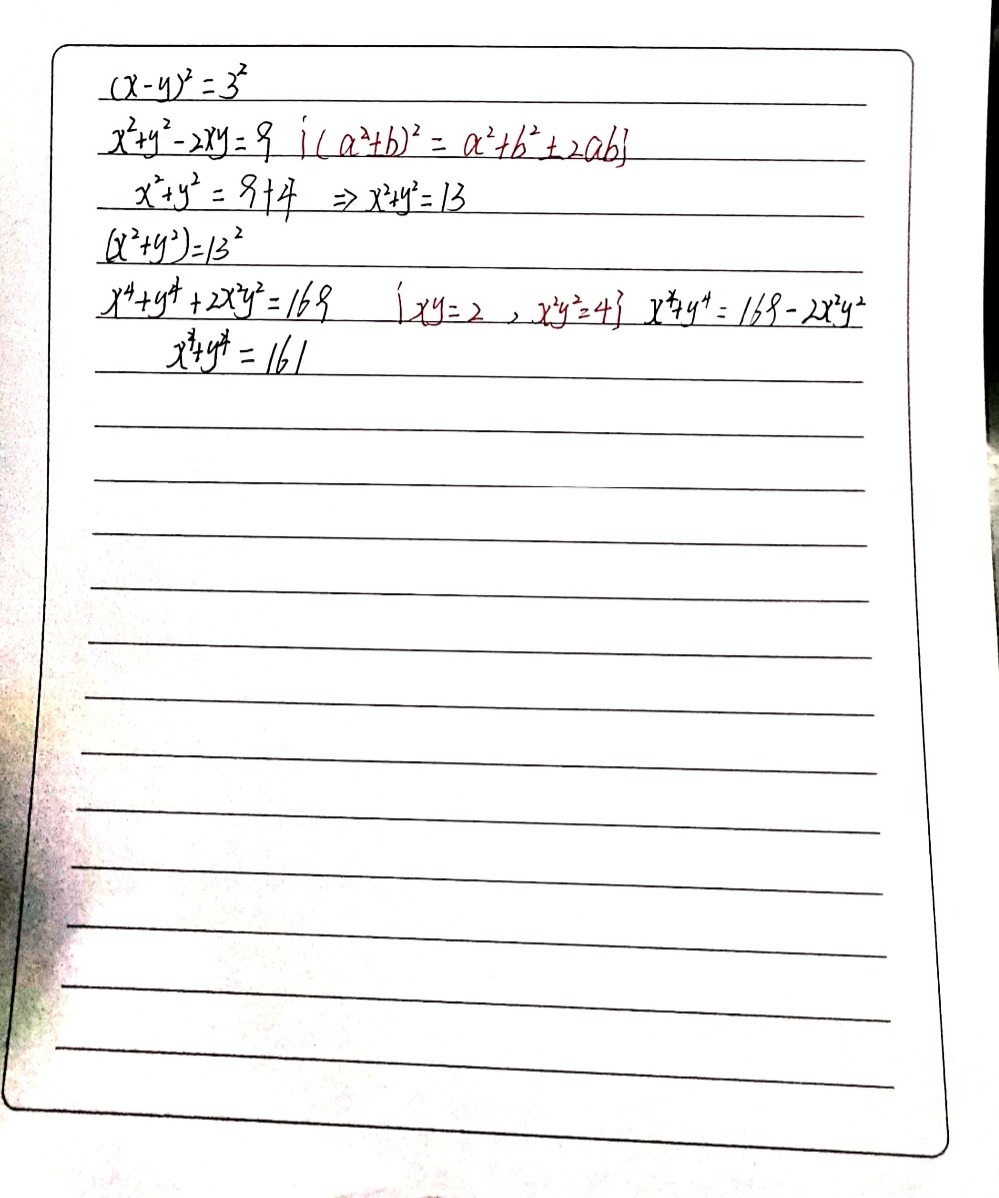 (x-y)² = 3²
x²+y²-2xy = 9 {(a²±b)² = a²+b²±2ab}
x²+y² = 9+4 ⇒ x²+y² = 13
(x²+y²) = 13²
x⁴+y⁴+2x²y² = 169 {xy=2 , x²y²=4} x⁴+y⁴ = 169-2x²y²
x⁴+y⁴ = 161